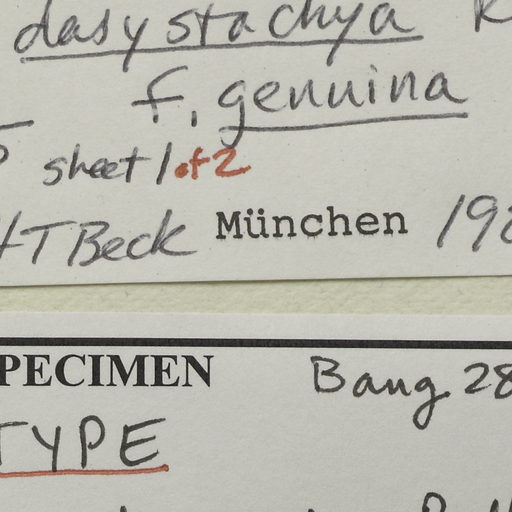 dasystachya
f. genuina
sheet 1 of 2
HT Beck München 198
SPECIMEN Bang 28
TYPE